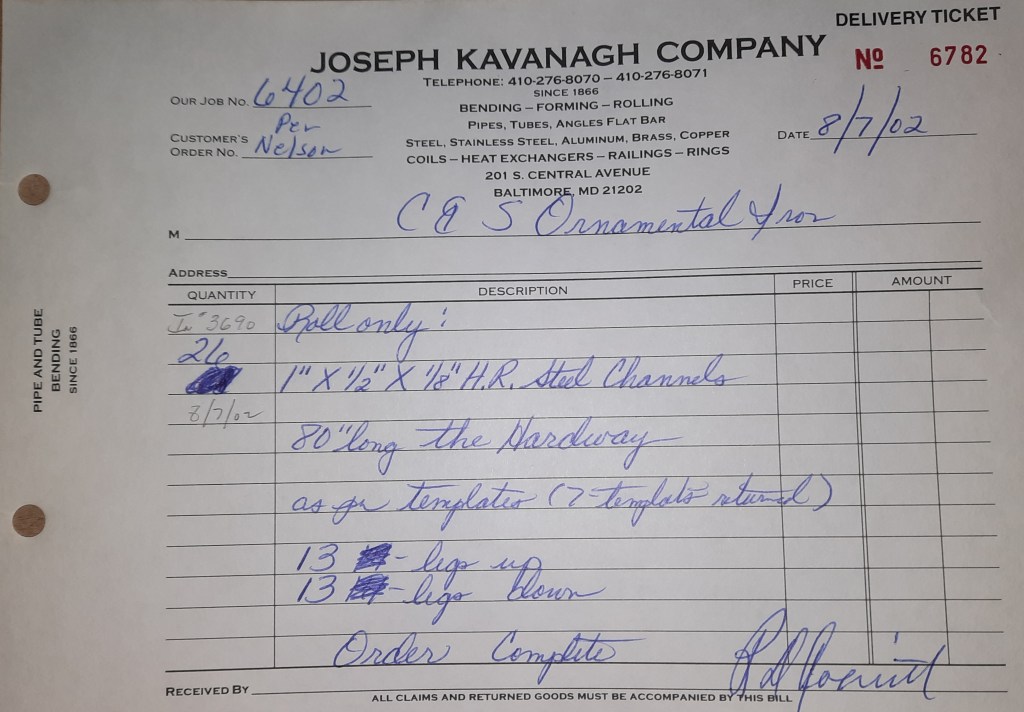 DELIVERY TICKET
JOSEPH KAVANAGH COMPANY
Nº 6782
TELEPHONE: 410-276-8070 – 410-276-8071
SINCE 1866
BENDING – FORMING – ROLLING
PIPES, TUBES, ANGLES FLAT BAR
STEEL, STAINLESS STEEL, ALUMINUM, BRASS, COPPER
COILS – HEAT EXCHANGERS – RAILINGS – RINGS
201 S. CENTRAL AVENUE
BALTIMORE, MD 21202
OUR JOB NO. 6402
CUSTOMER'S ORDER NO. Per Nelson
DATE 8/7/02
M C & S Ornamental Iron
ADDRESS
QUANTITY DESCRIPTION PRICE AMOUNT
In # 3690 Roll only:
26
1" X 1/2" X 1/8" H.R. Steel Channels
8/7/02
80" long the Hardway
as per templates (7-templats returned)
13 - legs up
13 - legs down
Order Complete
RECEIVED BY
ALL CLAIMS AND RETURNED GOODS MUST BE ACCOMPANIED BY THIS BILL
PIPE AND TUBE
BENDING
SINCE 1866